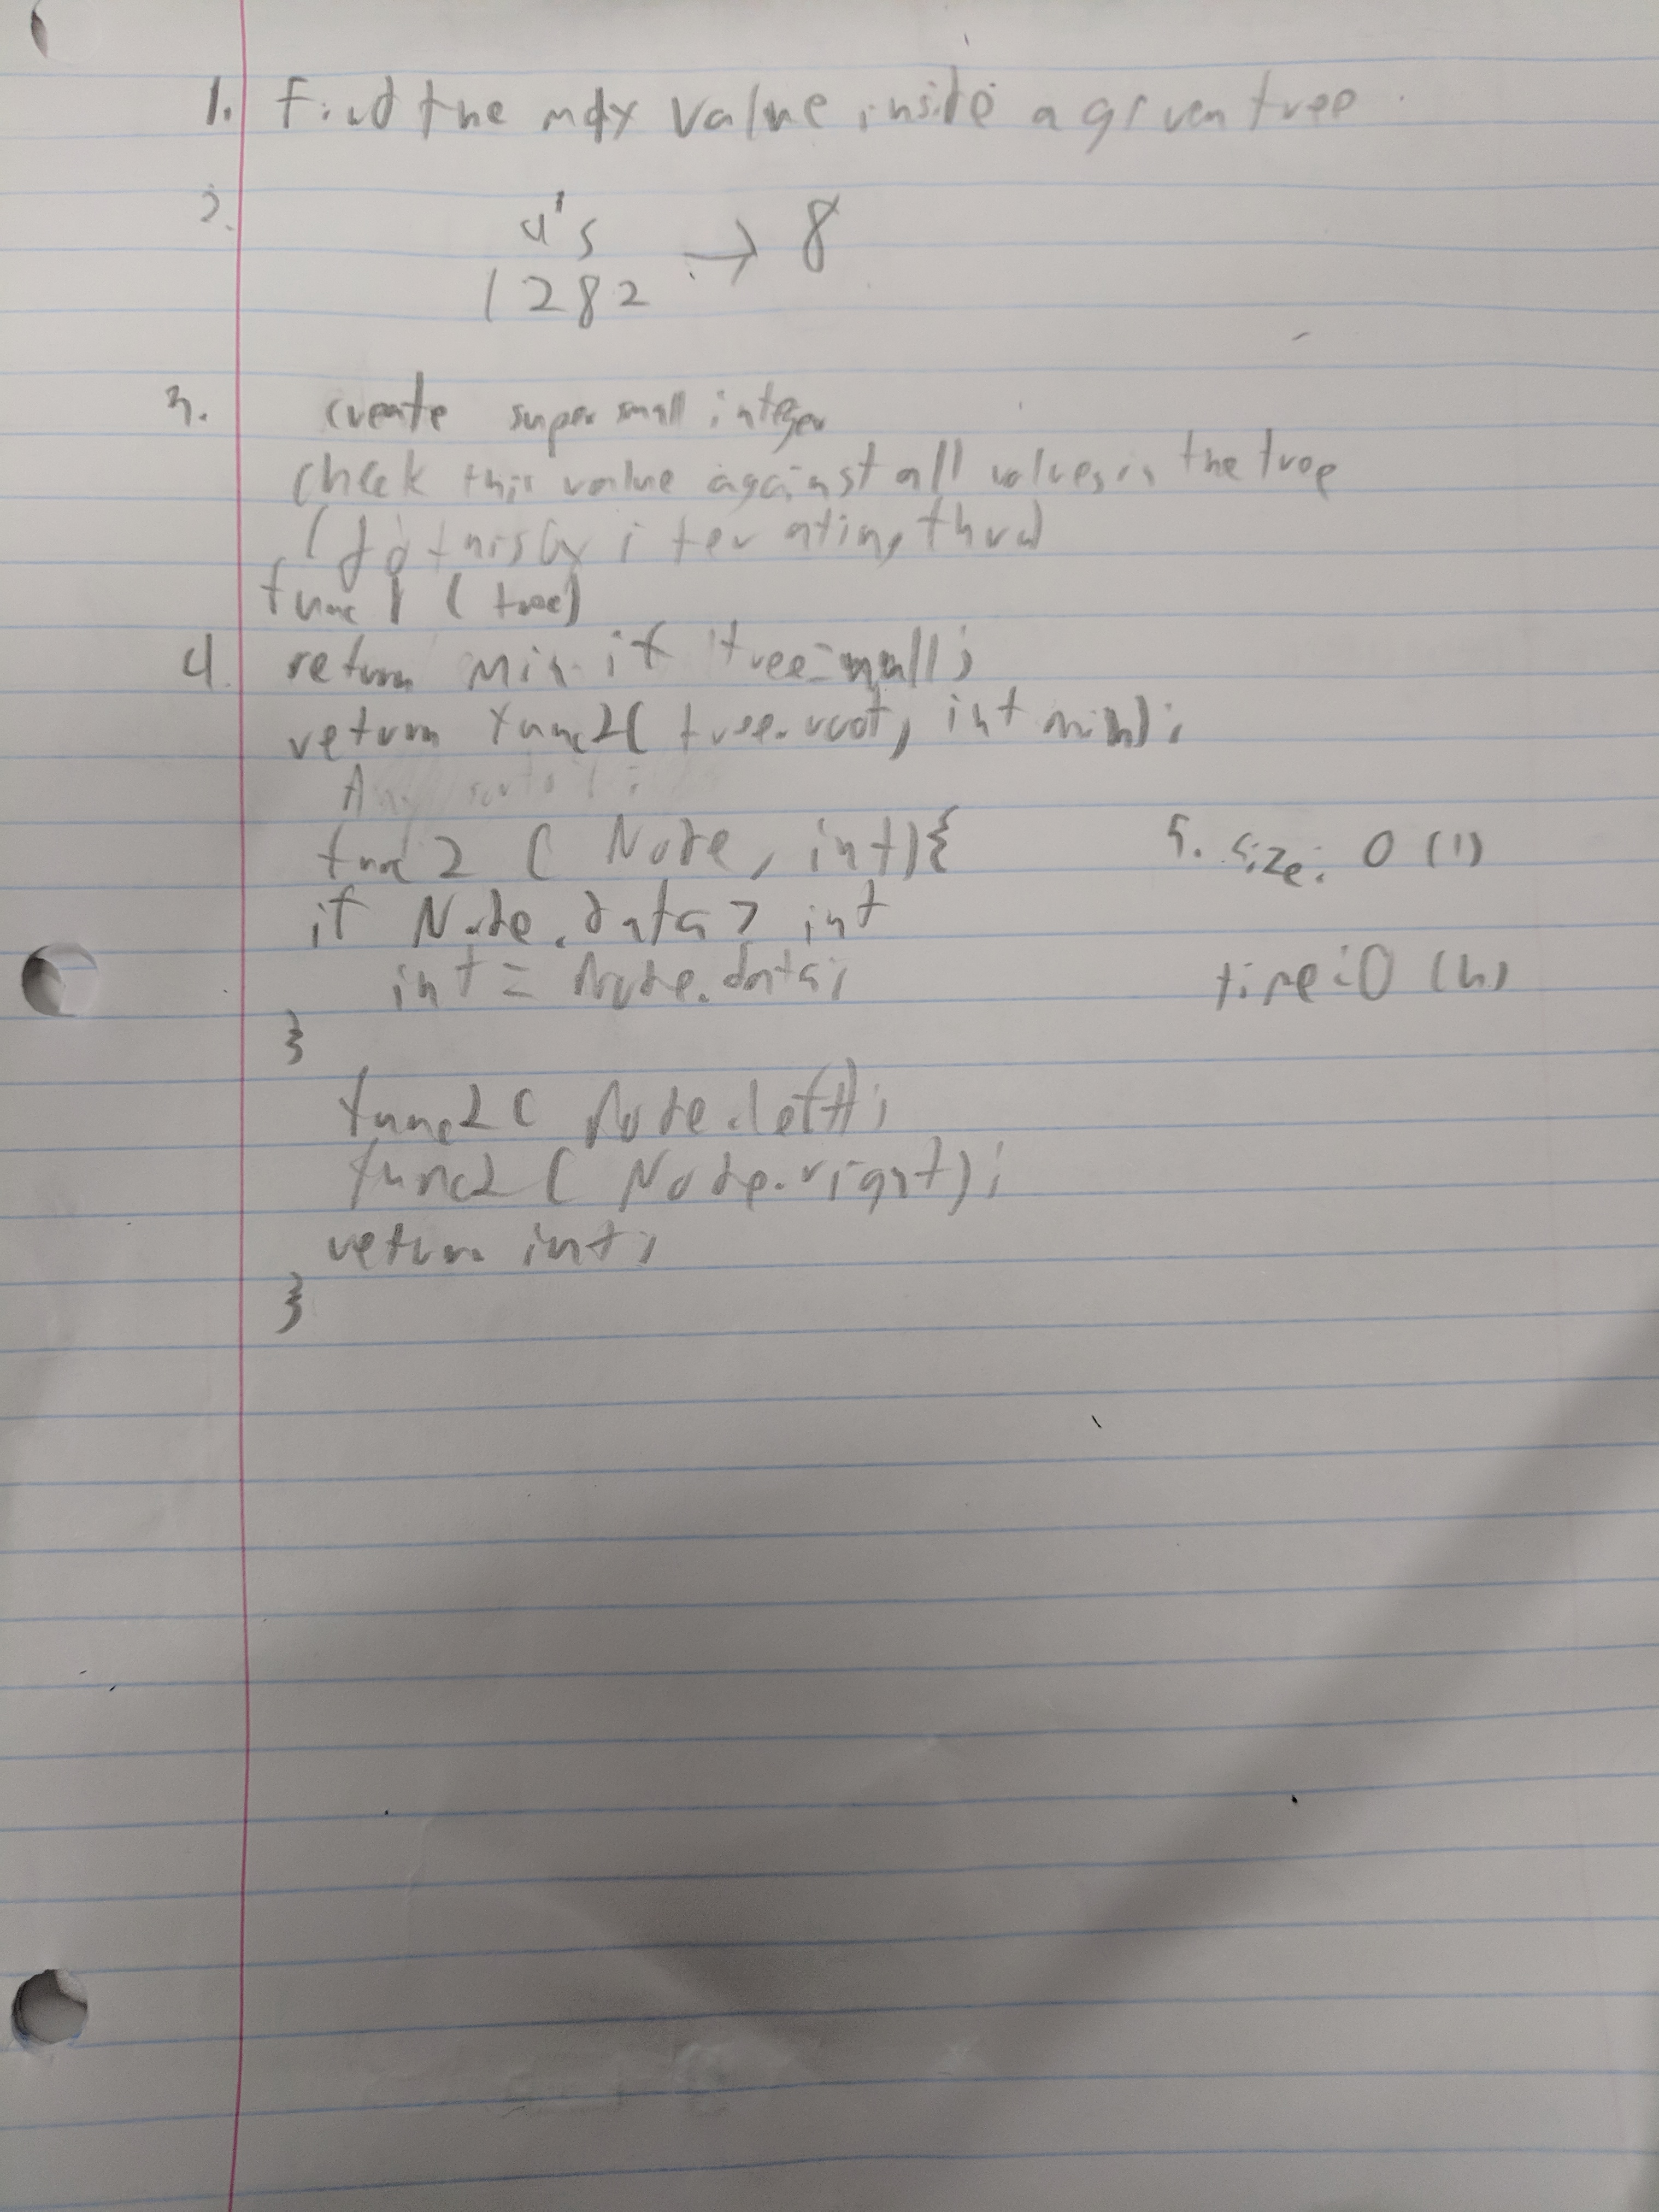 1. Find the max value inside a given tree.
2.
1
4 5
1 2 8 2 → 8
3. create super small integer
check this value against all values in the tree
(do this by iterating thru)
func1 (tree)
4. return min if tree = null;
return func2( tree.root, int min);
func2 ( Node, int){
5. size: O(1)
if Node.data > int
int = Node.data;
time: O(n)
}
func2( Node.left);
func2( Node.right);
return int;
}